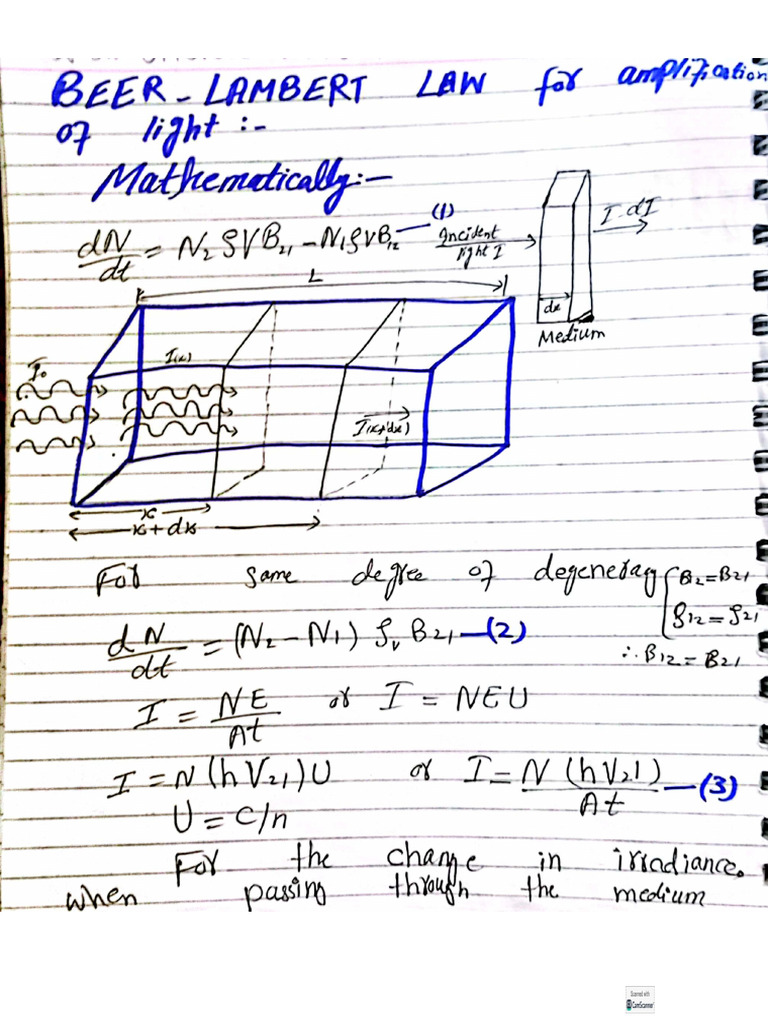 BEER-LAMBERT LAW for amplification
of light :-
Mathematically:-
dN/dt = N₂ ρν B₂₁ - N₁ ρν B₁₂ —(1)
Incident
light I
I dI
dx
Medium
L
I₀
I(x)
I(x+dx)
x
x + dx
For same degree of degeneracy { B₁₂ = B₂₁
g₁₂ = g₂₁
∴ B₁₂ = B₂₁
dN/dt = (N₂ - N₁) ρᵥ B₂₁ —(2)
I = NE/At or I = NEU
I = N (hν₂₁) U or I = N (hν₂₁)/At —(3)
U = C/n
For the change in irradiance.
when passing through the medium
Scanned with
CamScanner